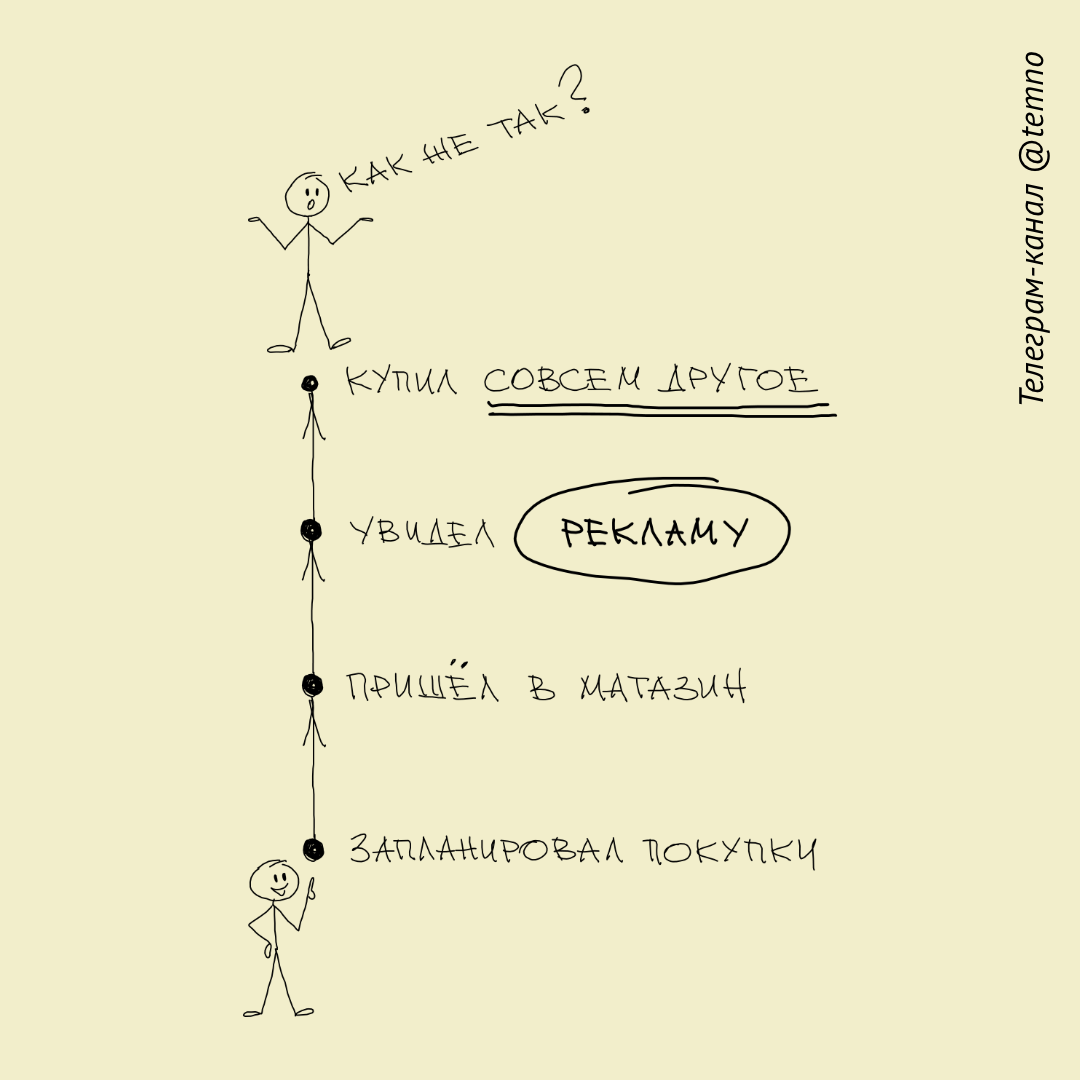 КАК ЖЕ ТАК?
КУПИЛ СОВСЕМ ДРУГОЕ
УВИДЕЛ РЕКЛАМУ
ПРИШЁЛ В МАГАЗИН
ЗАПЛАНИРОВАЛ ПОКУПКИ
Телеграм-канал @temno